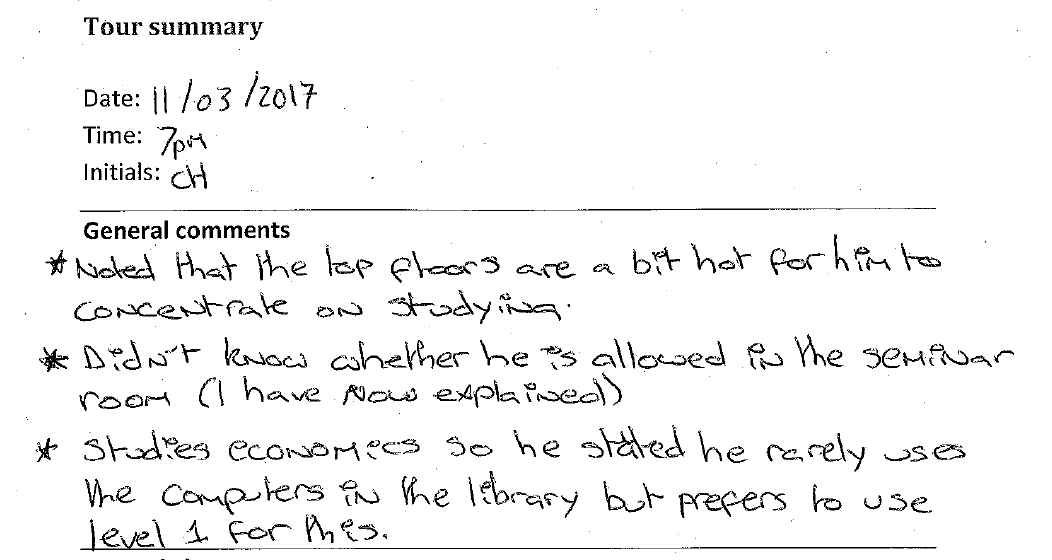 Tour summary
Date: 11/03/2017
Time: 7pm
Initials: CH
General comments
* Noted that the top floors are a bit hot for him to
concentrate on studying.
* Didn't know whether he is allowed in the seminar
room (I have now explained)
* Studies economics so he stated he rarely uses
the computers in the library but prefers to use
level 1 for this.